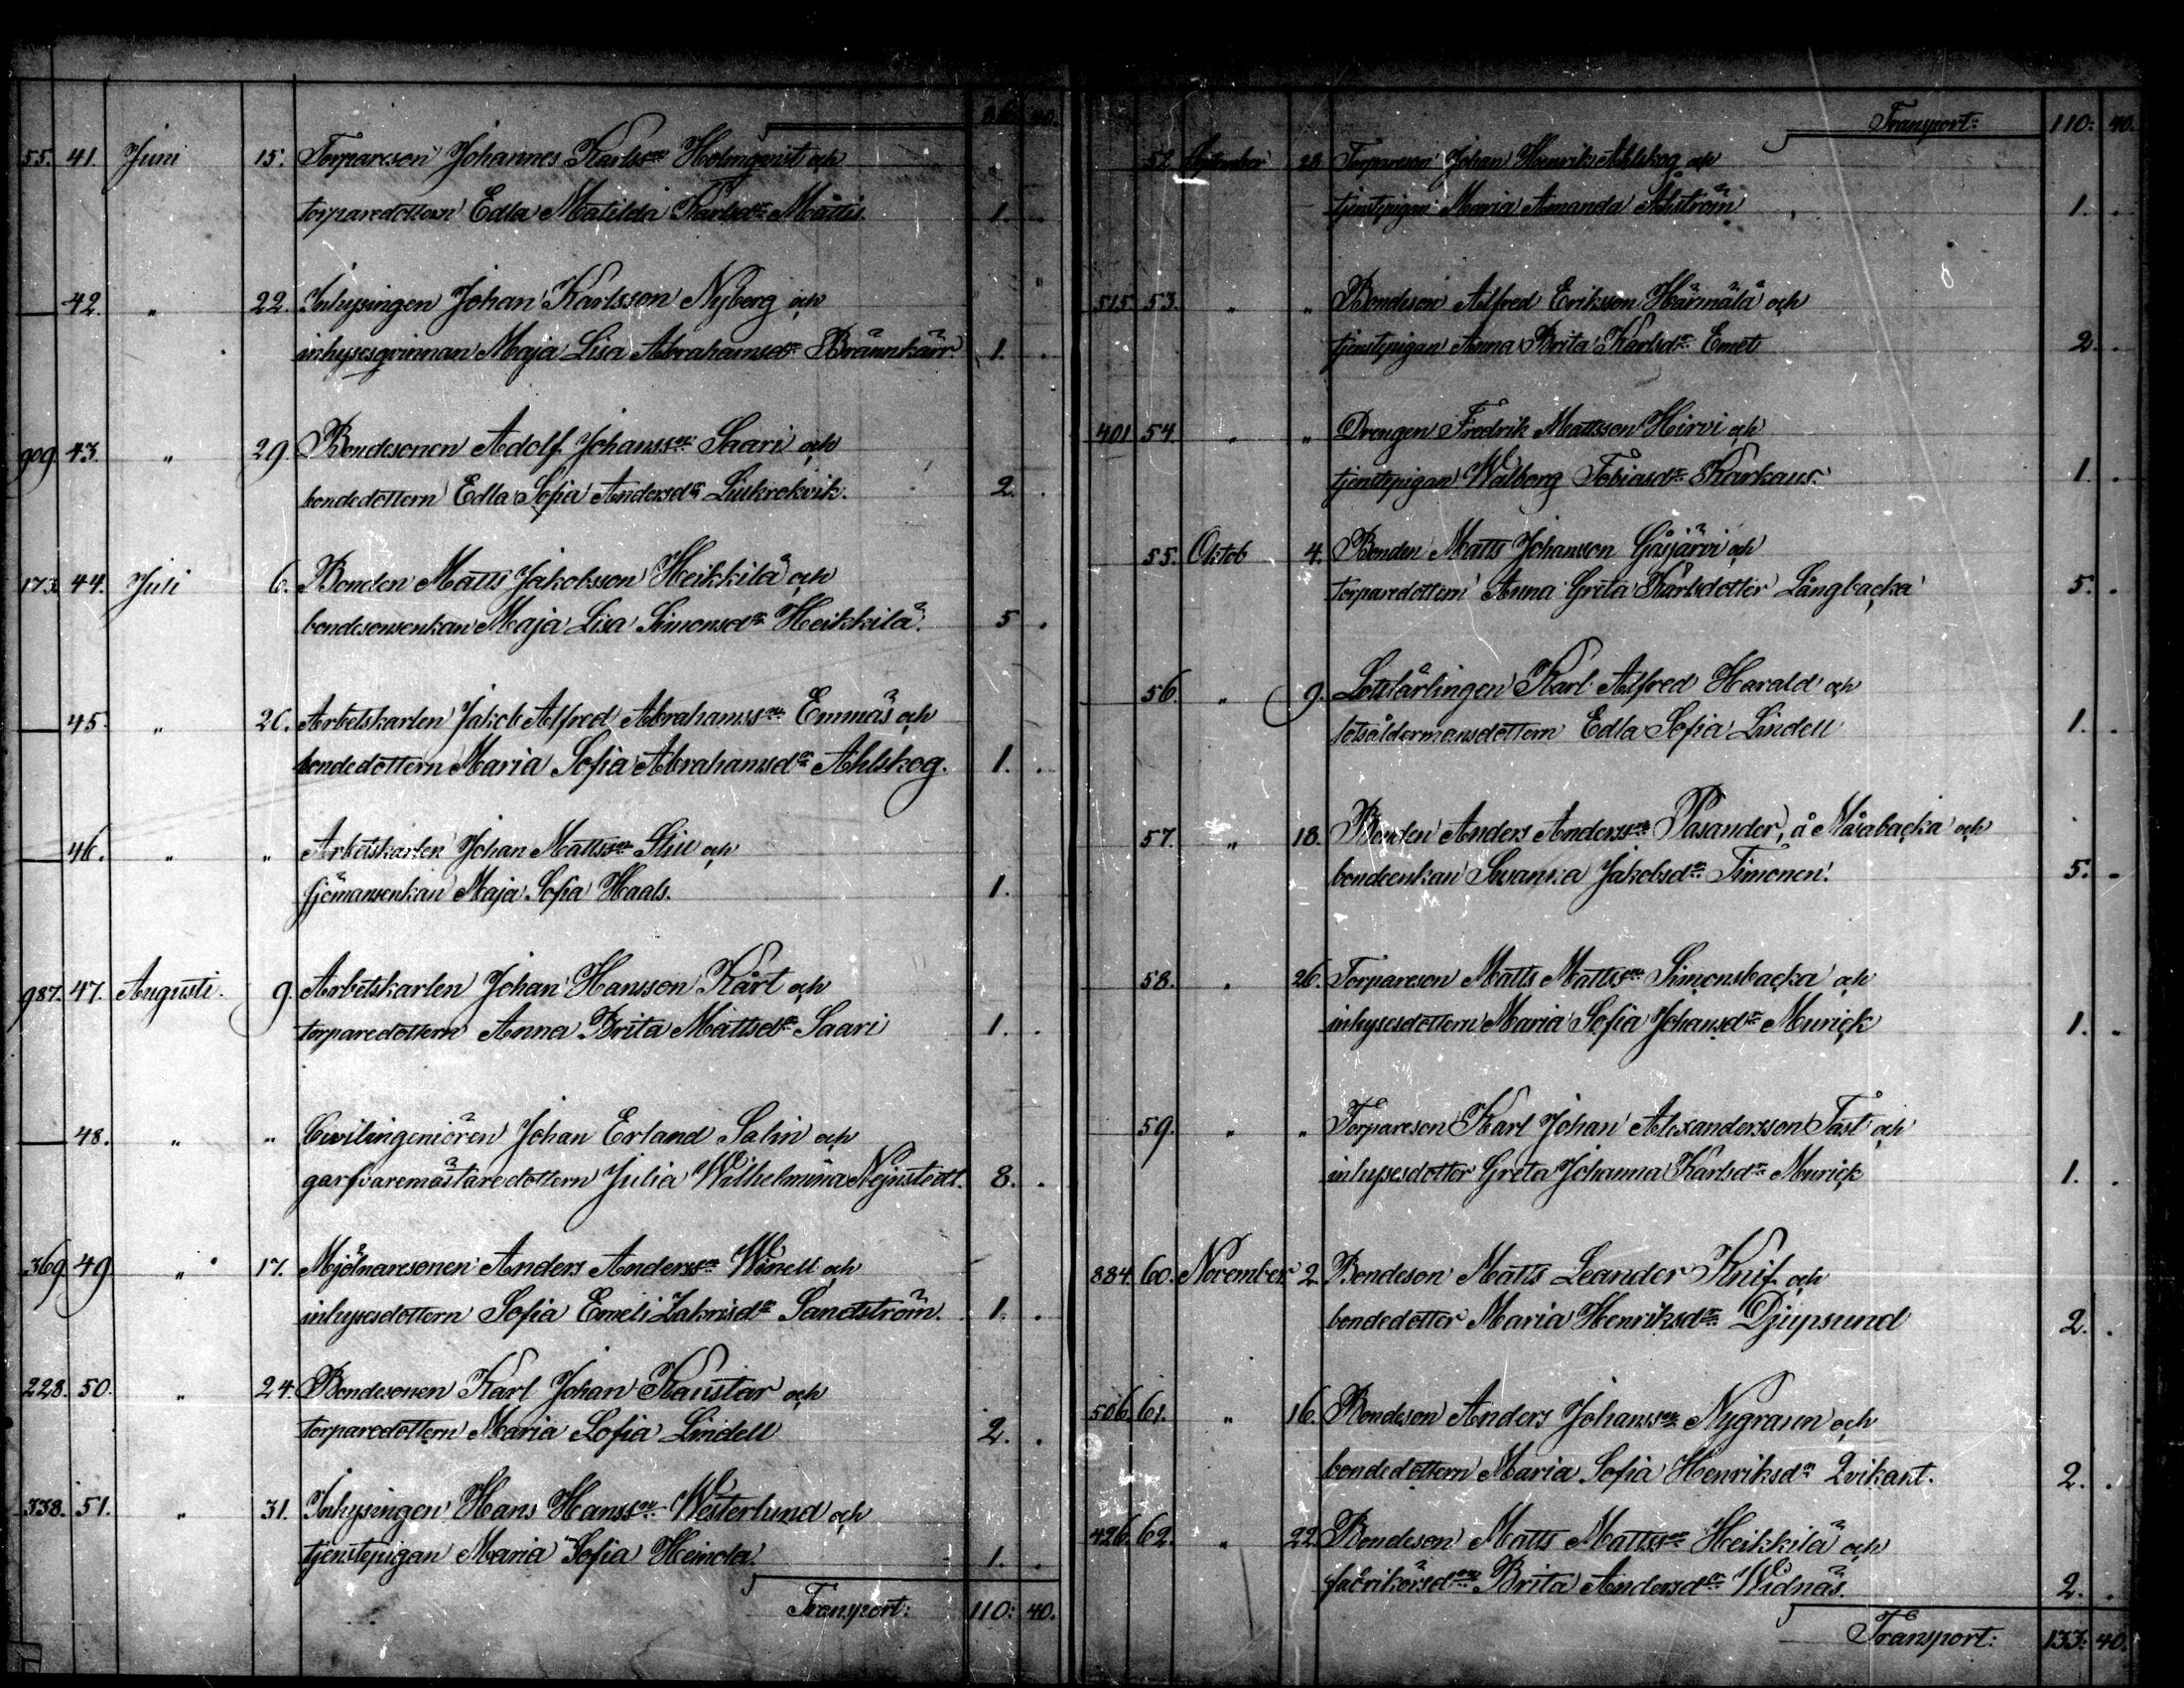 86. 40.
55. 41. Juni 15. Torpareson Johannes Karlsson Holmqvist och
torparedottern Edla Matilda Karlsdr Mattis. 1. .
42. " 22. Inhysingen Johan Karlsson Nyberg och
inhysesqvinnan Maja Lisa Abrahamsdr Brännkärr. 1. .
909. 43. " 29. Bondesonen Adolf Johansson Saari och
bondedottern Edla Sofia Andersdr Liskrokvik. 2. .
173. 44. Juli 6. Bonden Matts Jakobsson Heikkilä och
bondesonsenkan Maja Lisa Simonsdr Heikkilä. 5 .
45. " 26. Arbetskarlen Jakob Alfred Abrahamsson Emmäs och
bondedottern Maria Sofia Abrahamsdr Ahlskog. 1. .
46. " " Arbetskarlen Johan Mattsson och
sjömansenkan Maja Sofia Haals. 1.
987. 47. Augusti. 9. Arbetskarlen Johan Hansson Kårt och
torparedottern Anna Brita Mattsdr Saari 1. .
48. " " Civilingeniören Johan Erland Salin och
garfvaremästaredottern Julia Wilhelmina Nejnstedt. 8. .
369. 49 " 17. Mjölnaresonen Anders Andersson Winell och
inhysesdottern Sofia Emeli Zakrisdr Sandström. 1. .
228. 50. " 24. Bondesonen Karl Johan Kaustar och
torparedottern Maria Sofia Lindell 2. .
338. 51. " 31. Inhysingen Hans Hansson Westerlund och
tjenstepigan Maria Sofia Heinola. 1. .
Transport: 110: 40.
Transport: 110: 40.
52. September 28. Torpareson Johan Henrik Ahlskog och
tjenstepigan Maria Amanda Åhström 1. .
515. 53. " " Bondeson Alfred Eriksson Härmälä och
tjenstepigan Anna Brita Karlsdr Emet 2. .
401 54 " " Drengen Fredrik Mattsson Hirvi och
tjenstepigan Walborg Tobiasdr Karkaus. 1. .
55. Oktob 4. Bonden Matts Johansson Gåsjärvi och
torparedottern Anna Greta Karlsdotter Långbacka 5. .
56. " 9. Lotslärlingen Karl Alfred Harald och
lotsåldermansdottern Edla Sofia Lindell 1. .
57. " 18. Bonden Anders Andersson Pasander, å Måsabacka och
bondeenkan Susanna Jakobsdr Timonen. 5. .
58. " 26. Torpareson Matts Mattsson Simonsbacka och
inhysesdottern Maria Sofia Johansdr Murick 1. .
59. " " Torpareson Karl Johan Alexandersson Tast och
inhysesdotter Greta Johanna Karlsdr Murick 1. .
884. 60. November 2. Bondeson Matts Leander Knif och
bondedotter Maria Henriksdr Djupsund 2. .
506. 61. " 16. Bondeson Anders Johansson Nygrann och
bondedottern Maria Sofia Henriksdr Qvikant. 2. .
426. 62. " 22 Bondeson Matts Mattsson Heikkilä och
fabrikörsdr Brita Andersdr Widnäs. 2. .
Transport: 133: 40.